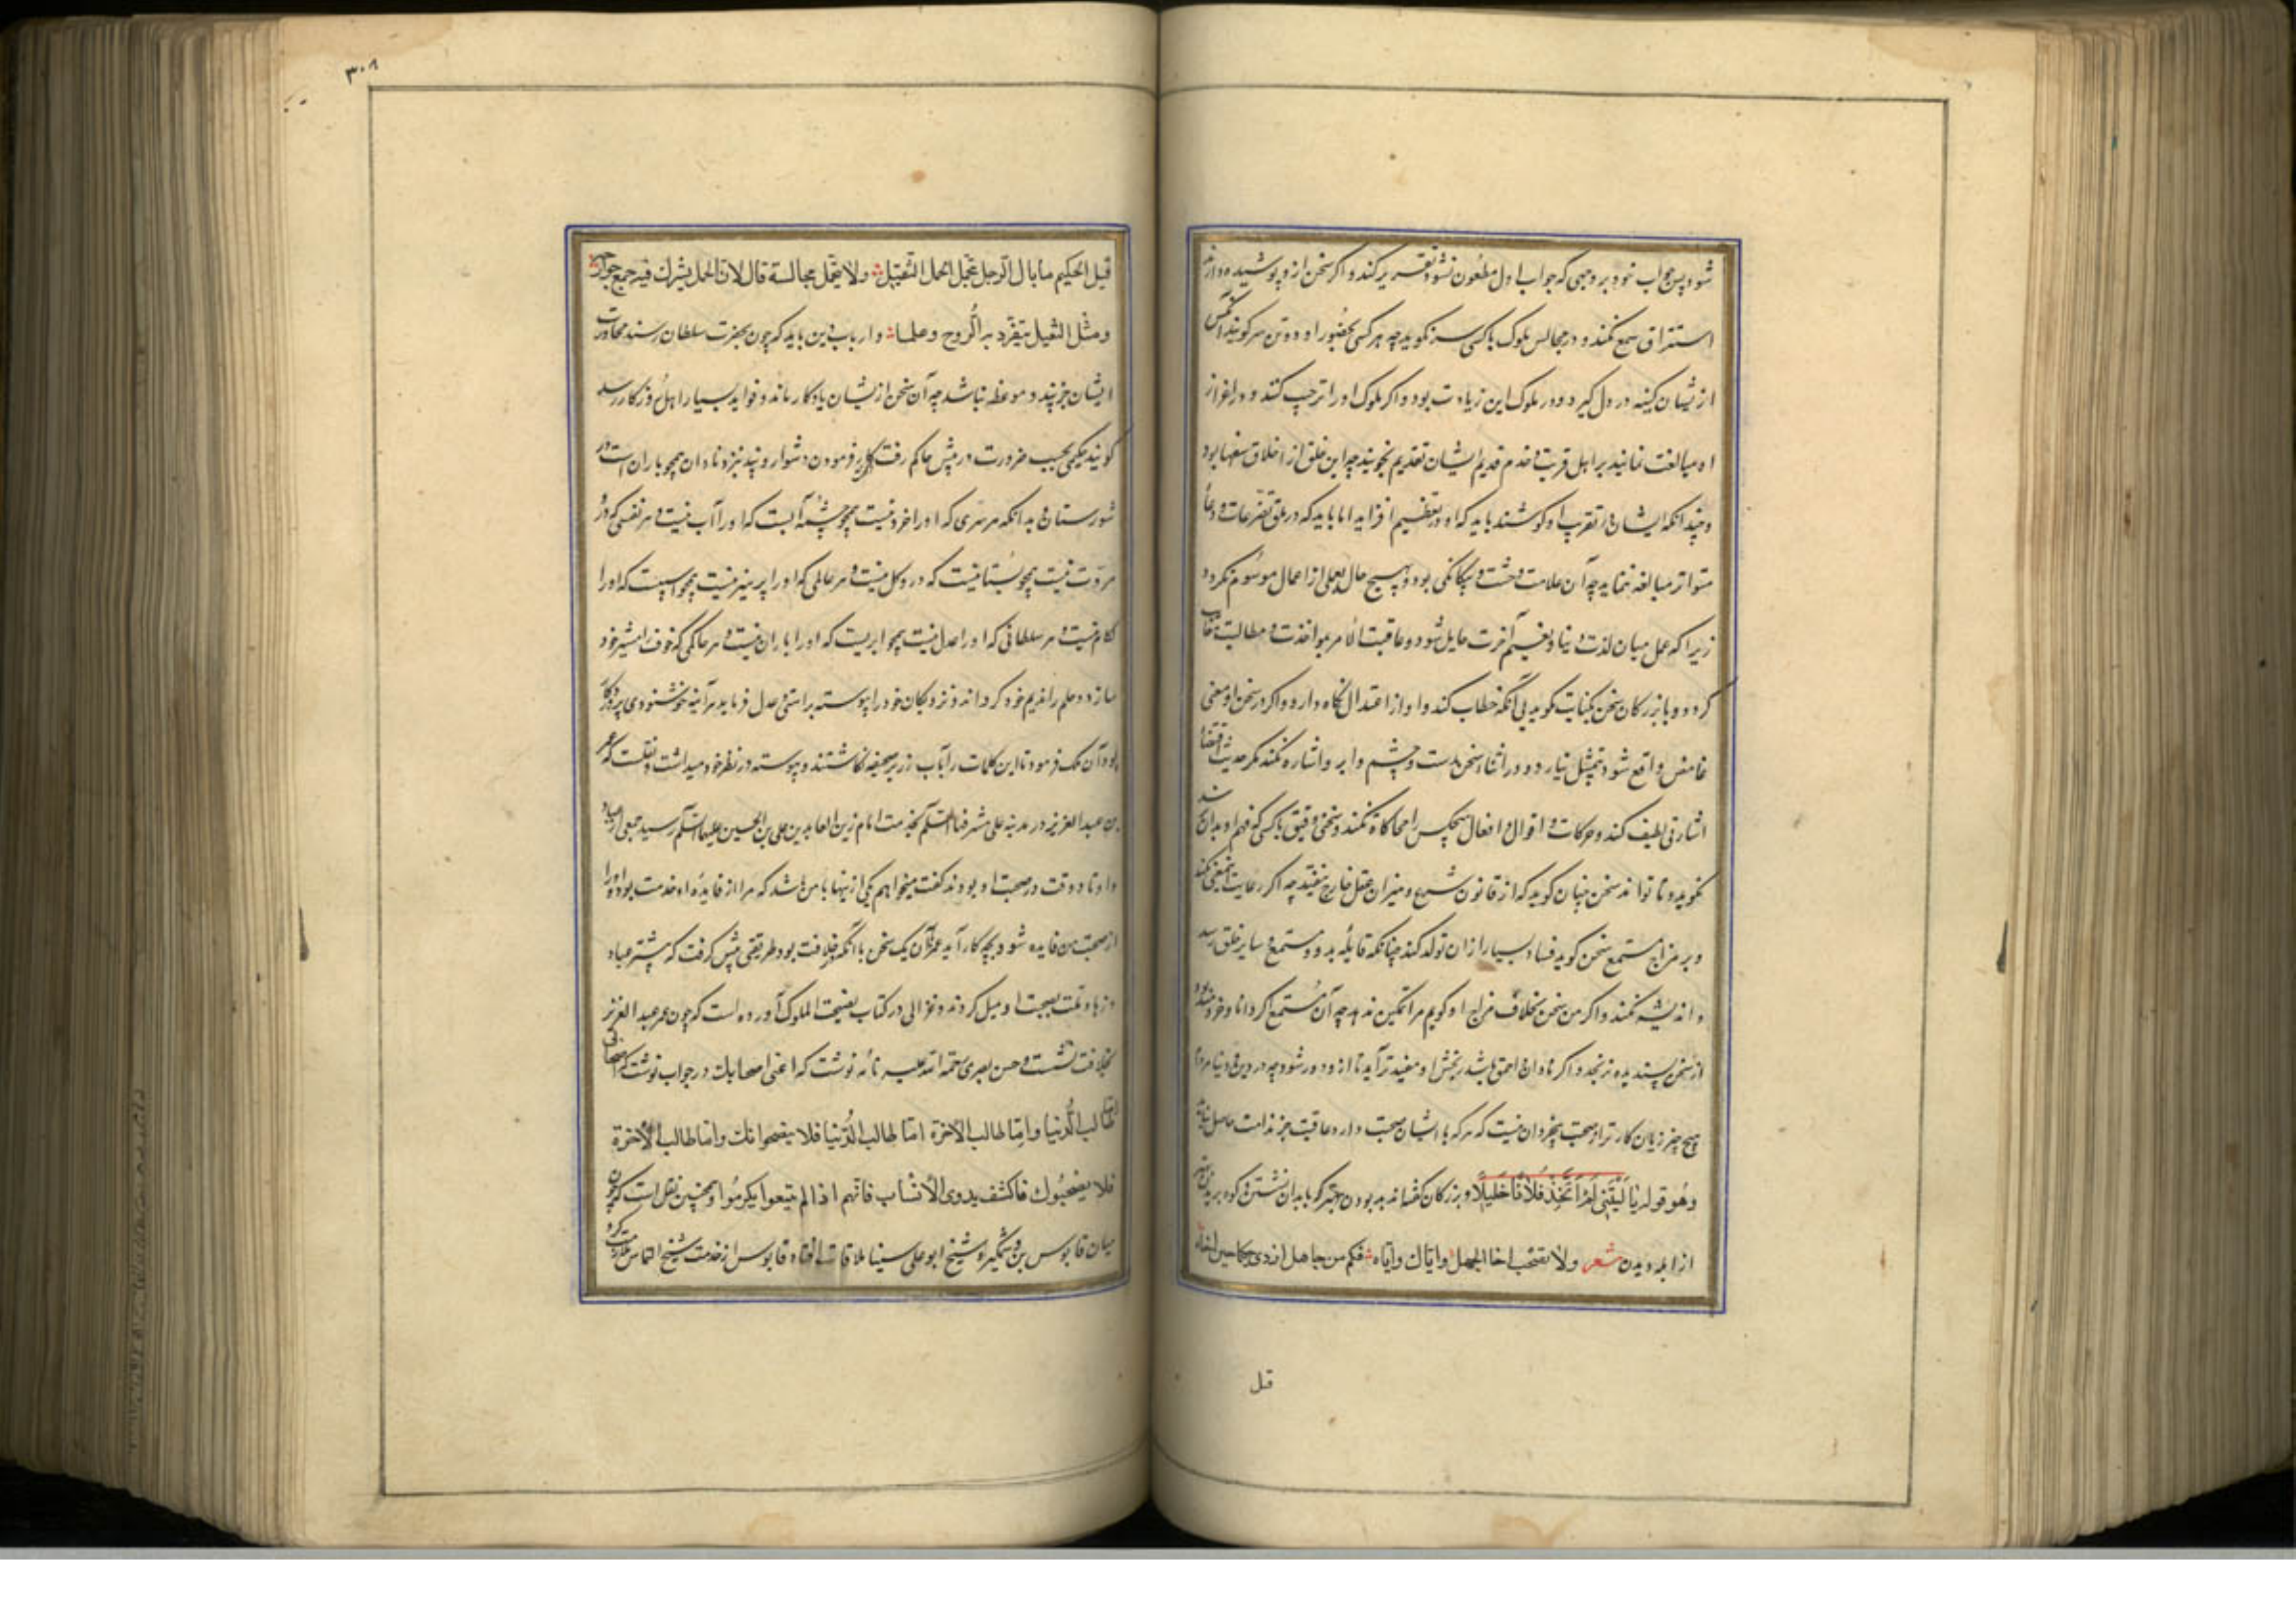 شود پس جواب خود بر وجهی که جواب اول مطعون نشود تقریر کند و اکر سخن ازو پوشیده دارند
استراق سمع نکند و در مجالس ملوک با کسی سر نکوید چه هر کسی بحضور او دو تن سر کویند آنکس
ازیشان کینه در دل کیرد و در ملوک این زیادت بود و اکر ملوک او را ترحیب کنند و در اعزاز
او مبالغت نمایند بر اهل قربت و خدم قدیم ایشان تقدیم نجوید چه این خلق از اخلاق سفها بود
و چندانکه ایشان در تقرب او کوشند باید که او در تعظیم افزاید اما باید که در ملق تضرعات و دعا
متواتر مبالغه ننماید چه آن علامت وحشت و بیکانکی بود و بهیچ حال بعملی از اعمال موسوم نکردد
زیرا که عمل میان لذت دنیا و نعیم آخرت حایل شود و عاقبت الامر بمواخذت و مطالبت
کردد و با بزرکان سخن بکنایت کوید بی آنکه خطاب کند و آواز اعتدال نکاه دارد و اکر در سخن او معنی
غامض واقع شود بتمثیل بیارد و در اثناء سخن بدست و چشم و ابرو اشاره نکند مکر حدیث اقتضاء
اشارتی لطیف کند و حرکات و اقوال و افعال هیچکس را محاکاة نکند و سخن دقیق با کسی که فهم او بدان نرسد
نکوید و تا تواند سخن چنان کوید که از قانون شرع و میزان عقل خارج نیفتد چه اکر رعایت این معنی نکند
و بر مزاج مستمع سخن کوید فساد بسیار از ان تولد کند چنانکه قایله بد و مستمع و سایر خلق رسد
و اندیشه نکند و اکر من سخن بخلاف مزاج او کویم مرا تمکین ندهد چه آن مستمع اکر دانا و خردمند بود
از سخن پسندیده نرنجد و اکر نادان احمق باشد رنجش او مفیدتر آید تا ازو دور شود چه در دین و دنیا مردم را
هیچ چیز زیان کارتر از صحبت بیخردان نیست که هر که با ایشان صحبت دارد عاقبت جز ندامت حاصل نیاید
و هو قوله یا لیتنی لم اتخذ فلانا خلیلا و بزرکان کفته اند بد بودن بهتر که با بدان نشستن و کوه بریدن بهتر
از ابله دیدن شعر ولا تصحب اخا الجهل و ایاک و ایاه فکم من جاهل اردی حکیما حین اخاه
قیل
۳۰۸
قیل لحکیم ما بال الرجل یحمل الحمل الثقیل ولا یحمل مجالسة قال لان الحمل یشرک فیه جمیع جوارحه
ومثل الثقیل یتفرد به الروح و علما و ارباب دین باید که چون بحضرت سلطان رسند محاورت
ایشان جز پند و موعظه نباشد چه آن سخن ازیشان یادکار ماند و فواید بسیار اهل روزکار رسد
کویند حکیمی بحسب ضرورت در پیش حاکم رفت کاری فرمودن دشوار و پند نزد نادان همچو باران است در
شورستان بدانکه هر سری که او را خرد نیست همچو چشمه ایست که او را آب نیست و هر نفسی که در
مروت نیست همچو بستانیست که درو کل نیست و هر عالمی که او را پرهیز نیست همچو اسبیست که او را
لکام نیست و هر سلطانی که او را عدل نیست همچو ابریست که او را باران نیست و هر حاکمی که خوف را مشیر خود
سازد و حلم را ندیم خود کرداند و نزدیکان خود را پیوسته براستی و عدل فرماید هر آینه خوشنودی پروردکار
بود آن ملک فرمود تا این کلمات را بآب زر بر صحیفه نکاشتند و پیوسته در نظر خود میداشت و نقلست که عمر
بن عبد العزیز در مدینه علی مشرفها السلم بخدمت امام زین العابدین علی بن الحسین علیهما السلم رسید جمعی از عباد
و اوتاد وقت در صحبت او بودند کفت میخواهم یکی ازینها با من باشد که مرا از فایده او خدمت بود و او را
از صحبت من فایده شود بچه کار آید عمر از آن یک سخن با آنکه خلافت بود طریقی پیش کرفت که بیشتر عباد
و زهاد وقت بصحبت او میل کردند و غزالی در کتاب نصیحت الملوک آورده است که چون عمر عبد العزیز
بخلافت نشست و حسن بصری رحمة الله علیه نامه نوشت که اعنی اصحابک در جواب نوشت که اصحابی
اما طالب الدنیا و اما طالب الاخرة اما طالب الدنیا فلا ینصحوانک و اما طالب الاخرة
فلا یصحبوک فاکشف بذوی الانساب فانهم اذا لم یتبعوا یکرموا و همچنین نقل است که چون
میان قابوس بن وشمکیر و شیخ ابو علی سینا ملاقات افتاد قابوس از خدمت شیخ التماس کرد